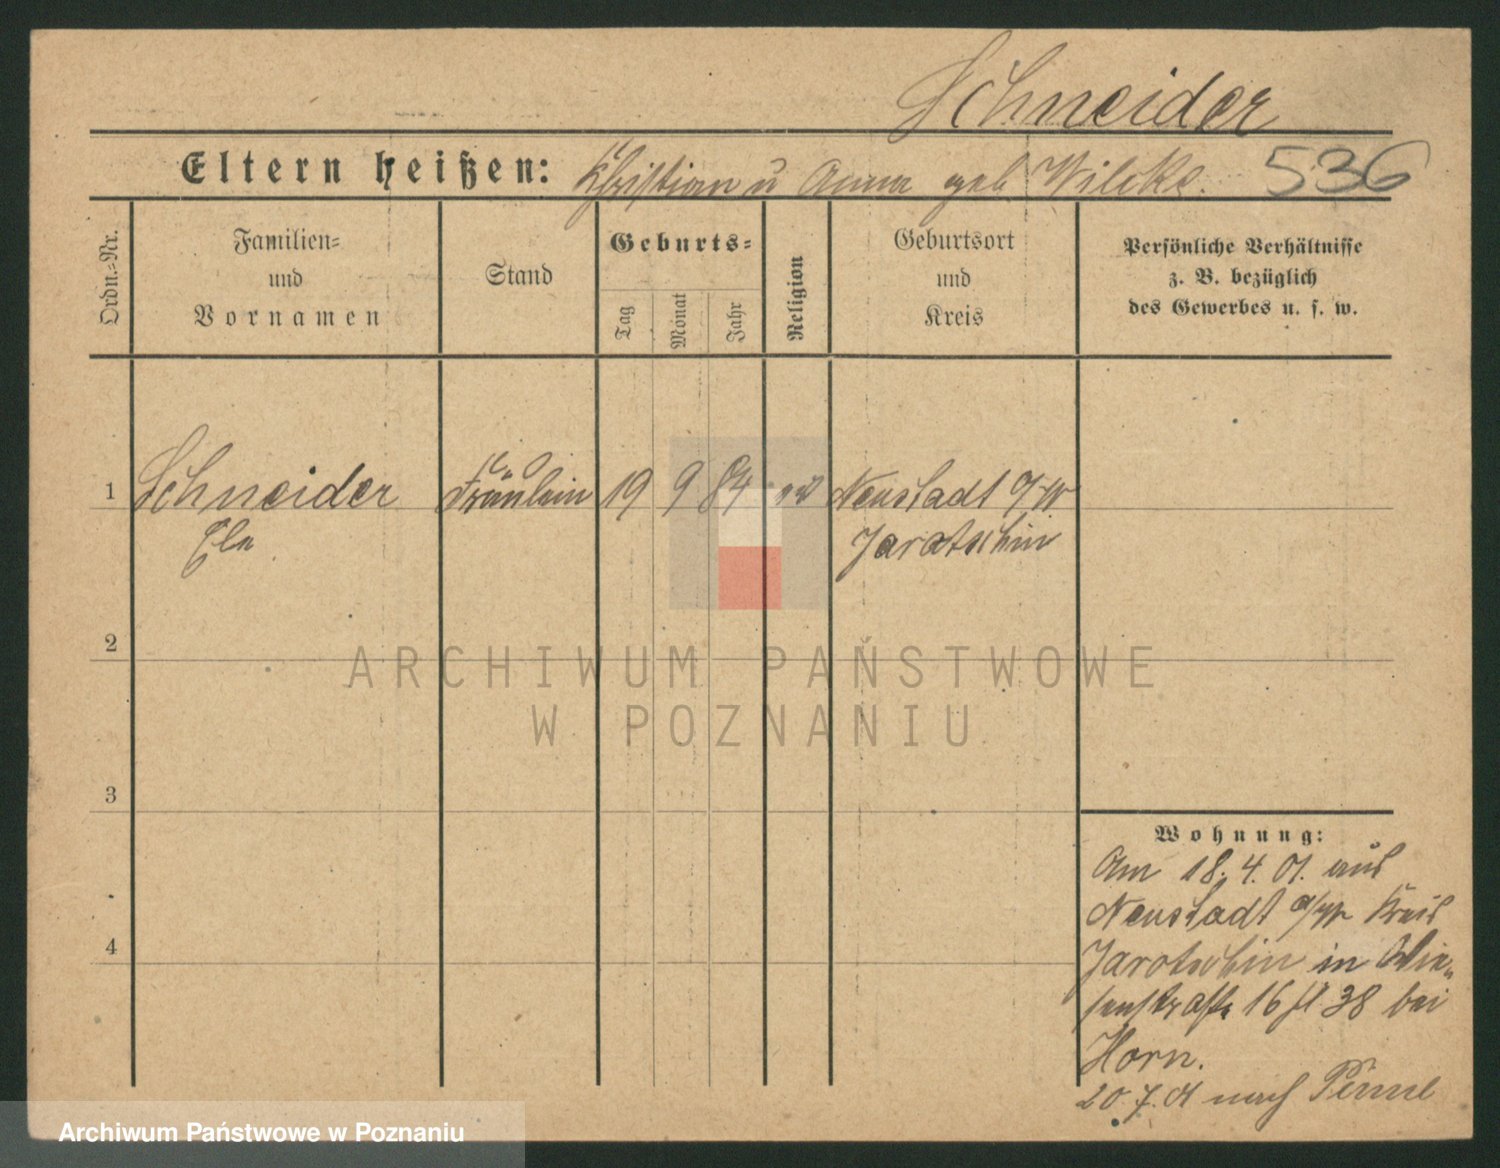 Schneider
Eltern heißen: Christian u Anna geb Wilcke. 536
Ordn.=Nr.
Familien=
und
Vornamen
Stand
Geburts=
Tag
Monat
Jahr
Religion
Geburtsort
und
Kreis
Persönliche Verhältnisse
z. B. bezüglich
des Gewerbes u. s. w.
1 Schneider Fräulein 19 9 84 Neustadt a/W.
Jarotschin
2
3
4
Wohnung:
Am 18. 4. 01. aus
Neustadt a/W Kreis
Jarotschin in Wie„
senstraße 16 38 bei
Horn.
20. 7. 01 nach
ARCHIWUM PAŃSTWOWE
W POZNANIU
Archiwum Państwowe w Poznaniu